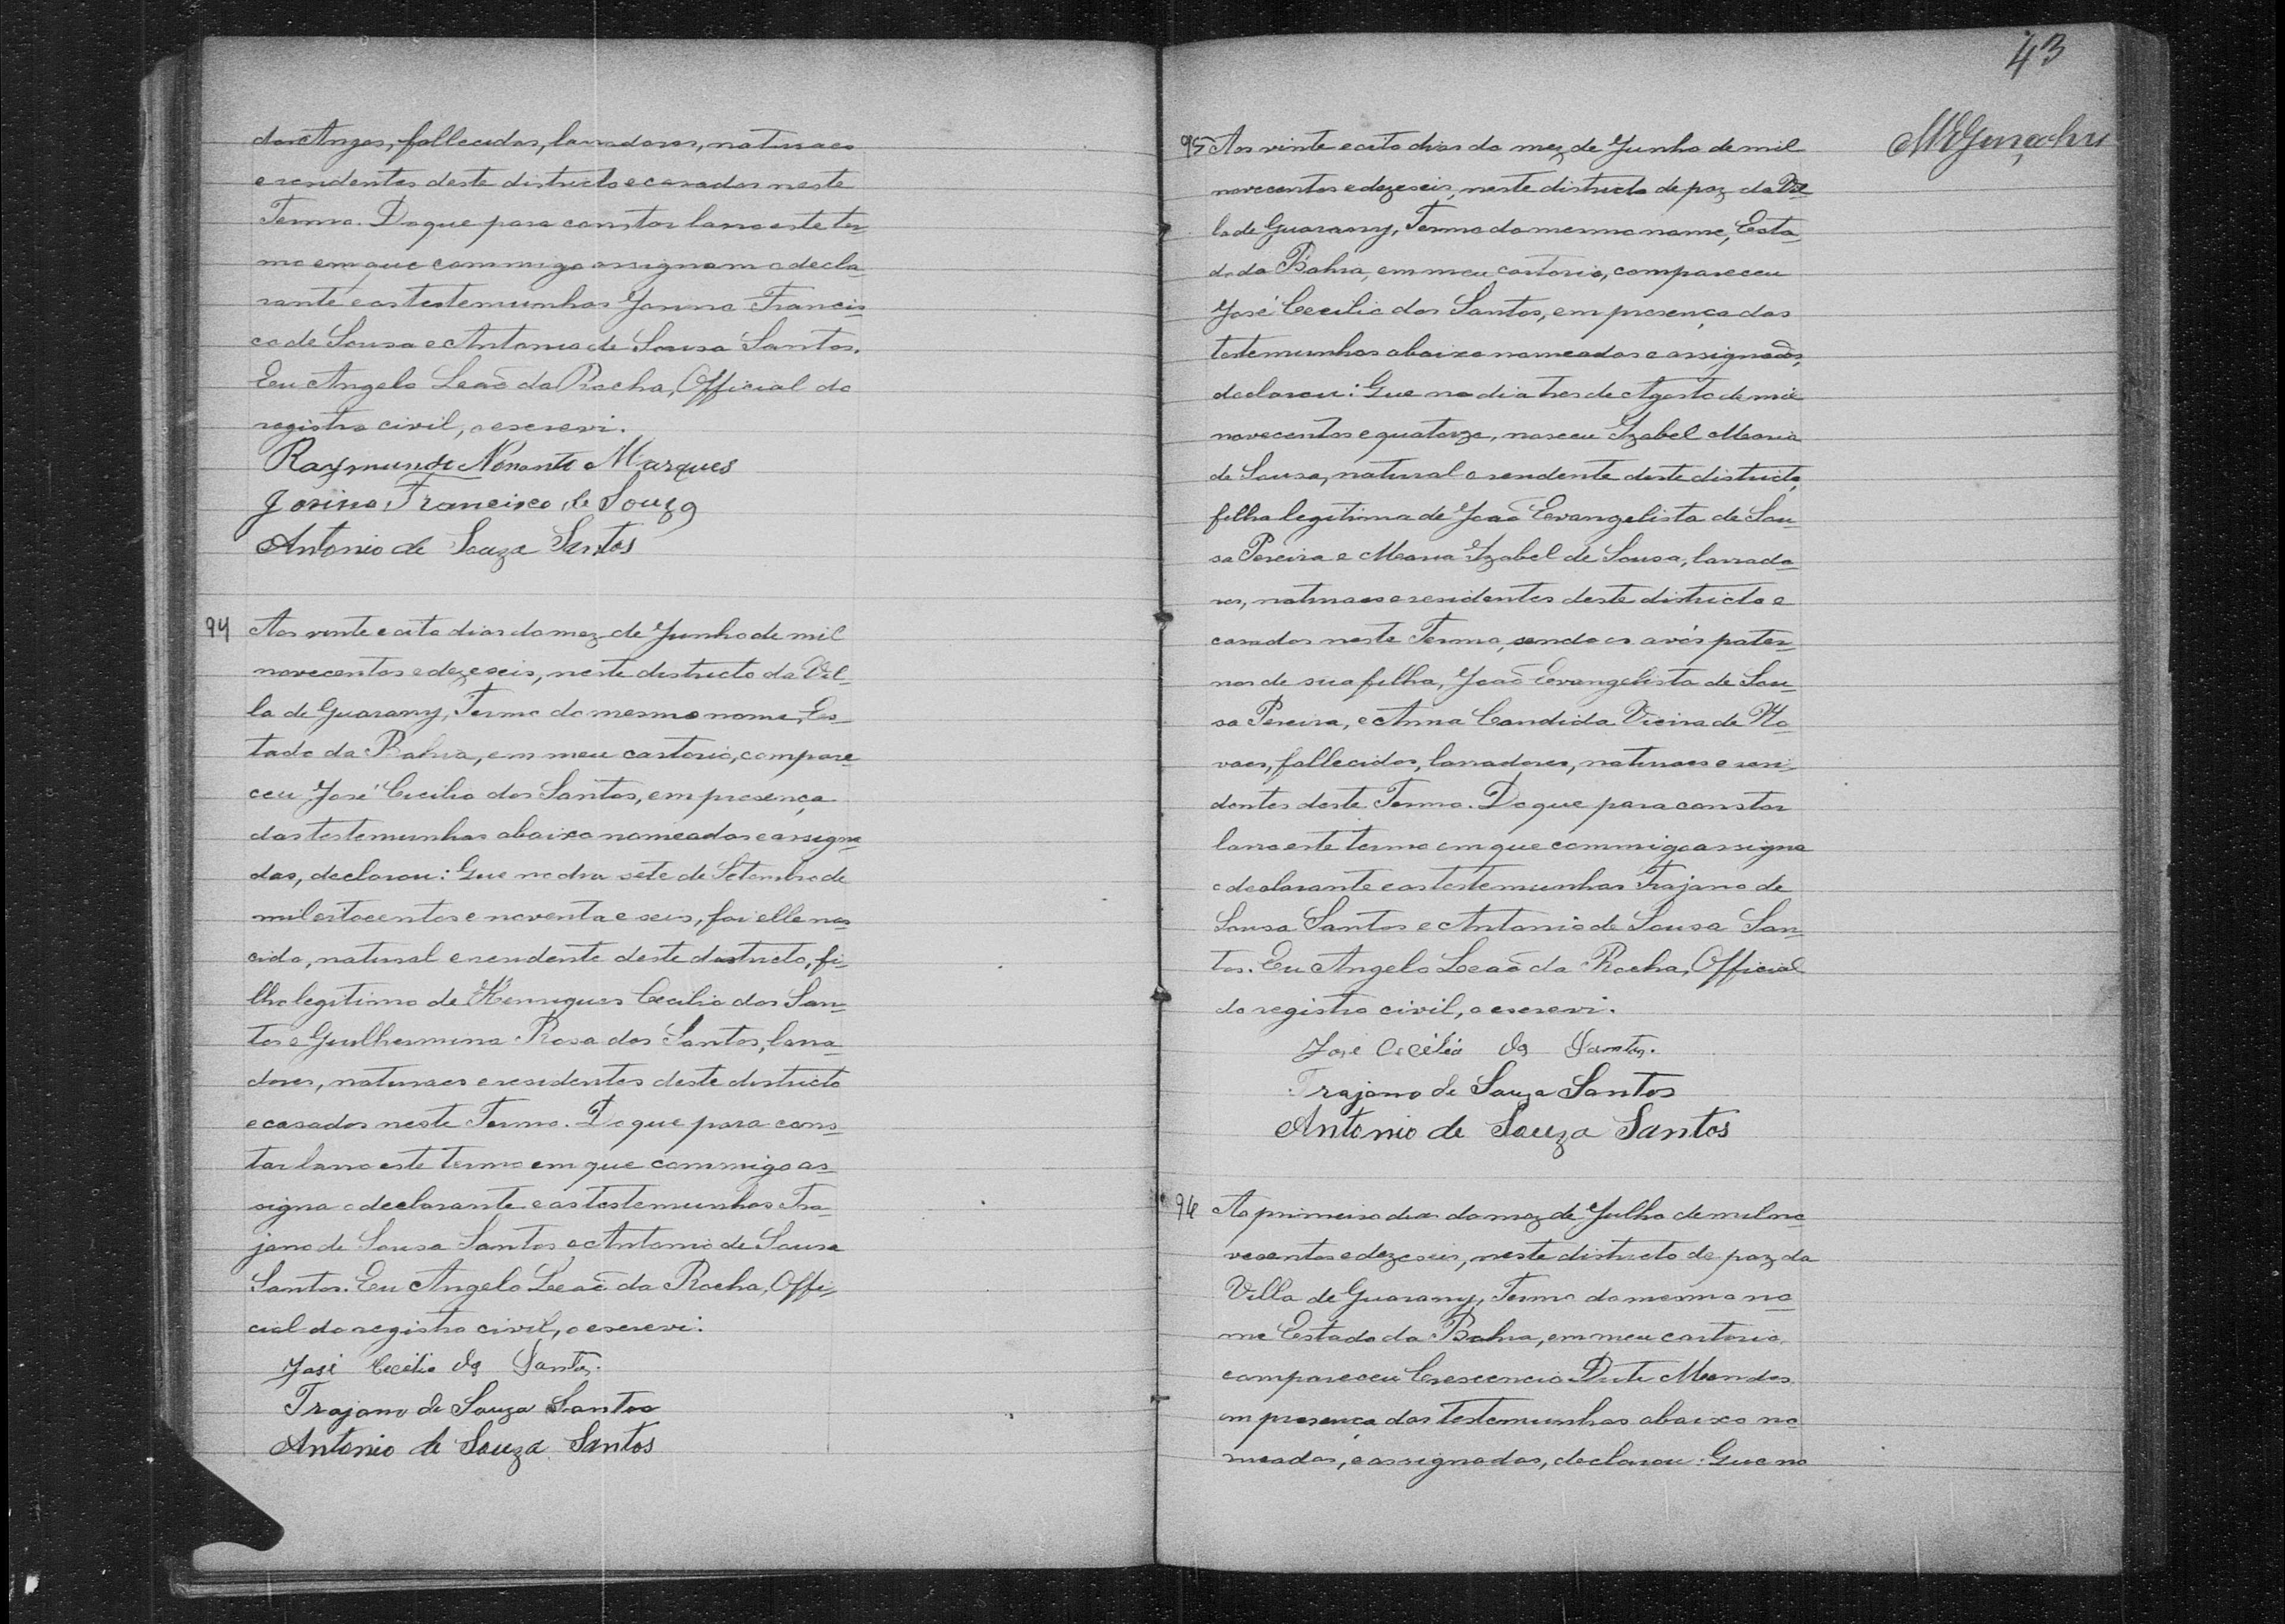 dos Anjos, fallecidos, lavradores, naturaes
e residentes deste districto e casados neste
Termo. Do que para constar lavro este ter-
mo em que commigo assignam o decla-
rante e as testemunhas Josino Francis-
co de Sousa e Antonio de Sousa Santos.
Eu Angelo Leaõ da Rocha, Official do
registro civil, o escrevi.
Raymundo Nonanto Marques
Josino Francisco de Souza
Antonio de Souza Santos
94 Aos vinte e oito dias do mez de Junho de mil
novecentos e dezeseis, neste districto da Vil-
la de Guarany, Termo do mesmo nome, Es-
tado da Bahia, em meu cartorio, compare-
ceu José Cecilio dos Santos, em presença
das testemunhas abaixo nomeadas e assigna-
das, declarou: Que no dia sete de Setembro de
mil eitocentos e noventa e seis, foi elle nas-
cido, natural e residente deste districto, fi-
lho legitimo de Henriques Cecilio dos San-
tos e Guilhermina Rosa dos Santos, lavra-
dores, naturaes e residentes deste districto
e casados neste Termo. Do que para cons-
tar lavro este termo em que commigo as-
signa o declarante e as testemunhas Tra-
jano de Sousa Santos e Antonio de Sousa
Santos. Eu Angelo Leaõ da Rocha, Offi-
cial do registro civil, o escrevi.
José Cecilio ds Santos.
Trajano de Souza Santos
Antonio de Souza Santos
43
MGonçalves
95 Aos vinte e oito dias do mez de Junho de mil
novecentos e dezeseis, neste districto de paz da Vil-
la de Guarany, Termo do mesmo nome, Esta-
do da Bahia, em meu cartorio, compareceu
José Cecilio dos Santos, em presença das
testemunhas abaixo nomeadas e assignadas,
declarou: Que no dia tres de Agosto de mil
novecentos e quatorze, nasceu Izabel Maria
de Sousa, natural e residente deste districto,
filha legitima de Joaõ Evangelista de Sou-
sa Pereira e Maria Izabel de Sousa, lavrado-
res, naturaes e residentes deste districto e
casados neste Termo, sendo os avós pater-
nos de sua filha, Joaõ Evangelista de Sou-
sa Pereira, e Anna Candida Vieira de No-
vaes, fallecidos, lavradores, naturaes e resi-
dentes deste Termo. Do que para constar
lavro este termo em que commigo assigna
o declarante e as testemunhas Trajano de
Sousa Santos e Antonio de Sousa San-
tos. Eu Angelo Leaõ da Rocha, Official
do registro civil, o escrevi.
José Cecilio ds Santos.
Trajano de Souza Santos
Antonio de Souza Santos
96 Ao primeiro dia do mez de Julho de mil no-
vecentos e dezeseis, neste districto de paz da
Villa de Guarany, Termo do mesmo no-
me Estado da Bahia, em meu cartorio
compareceu Crescencio Mendes
em presença das testemunhas abaixo no-
meadas, e assignadas, declarou: Que no